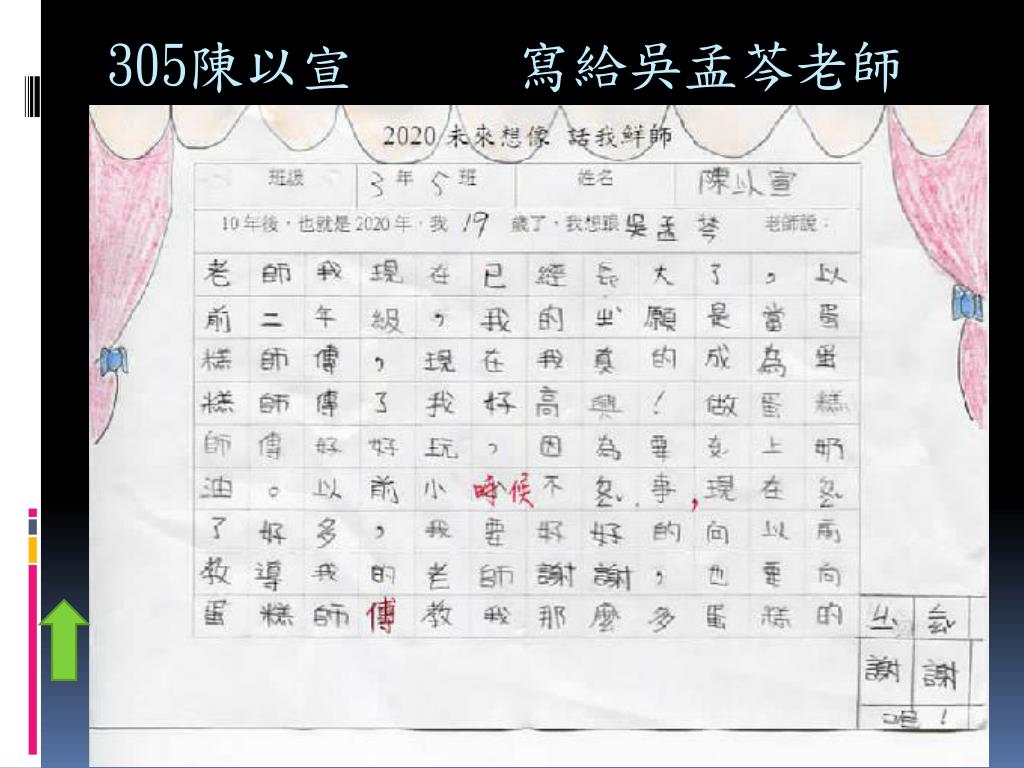 305陳以宣 寫給吳孟芩老師
2020 未來想像 話我鮮師
班級 3 年 5 班 姓名 陳以宣
10年後，也就是2020年，我 19 歲了，我想跟 吳孟芩 老師說：
老師我現在已經長大了，以
前二年級，我的出願是當蛋
糕師傅，現在我真的成為蛋
糕師傅了我好高興！做蛋糕
師傅好好玩，因為要 上奶
油。以前小時候不 事，現在
了好多，我要好好的向以前
教導我的老師謝謝，也要向
蛋糕師傅教我那麼多蛋糕的
謝謝
！